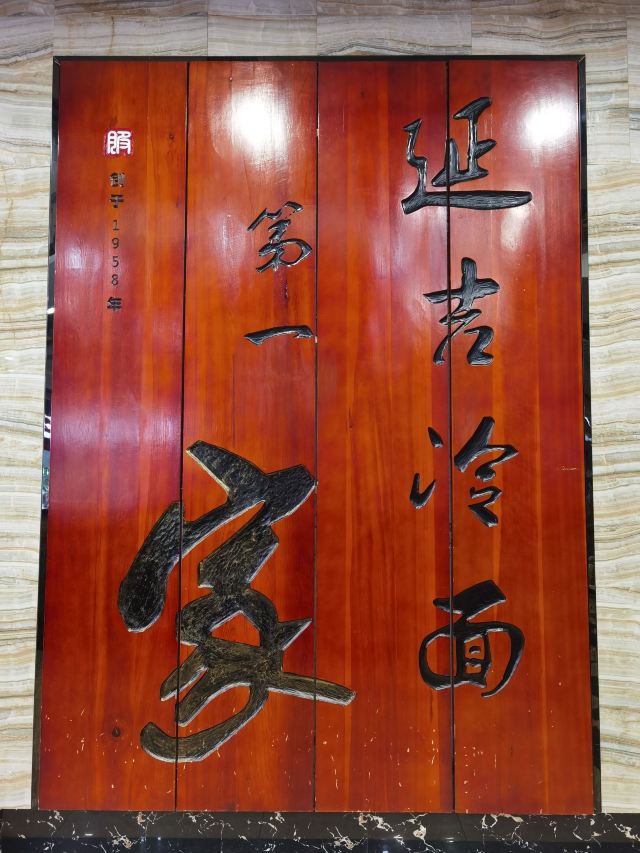 延吉冷面
第一家
创于1958年